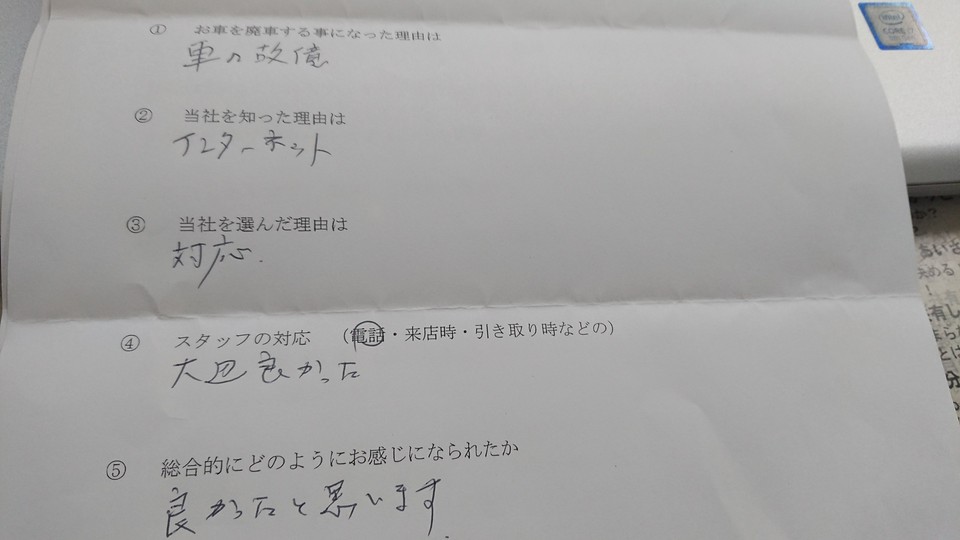 ① お車を廃車する事になった理由は
車の故障
② 当社を知った理由は
インターネット
③ 当社を選んだ理由は
対応.
④ スタッフの対応 (電話・来店時・引き取り時などの)
大辺良かった
⑤ 総合的にどのようにお感じになられたか
良かったと思います.
intel
CORE i7
か?
あいさ
決める
!
有し
とは
分